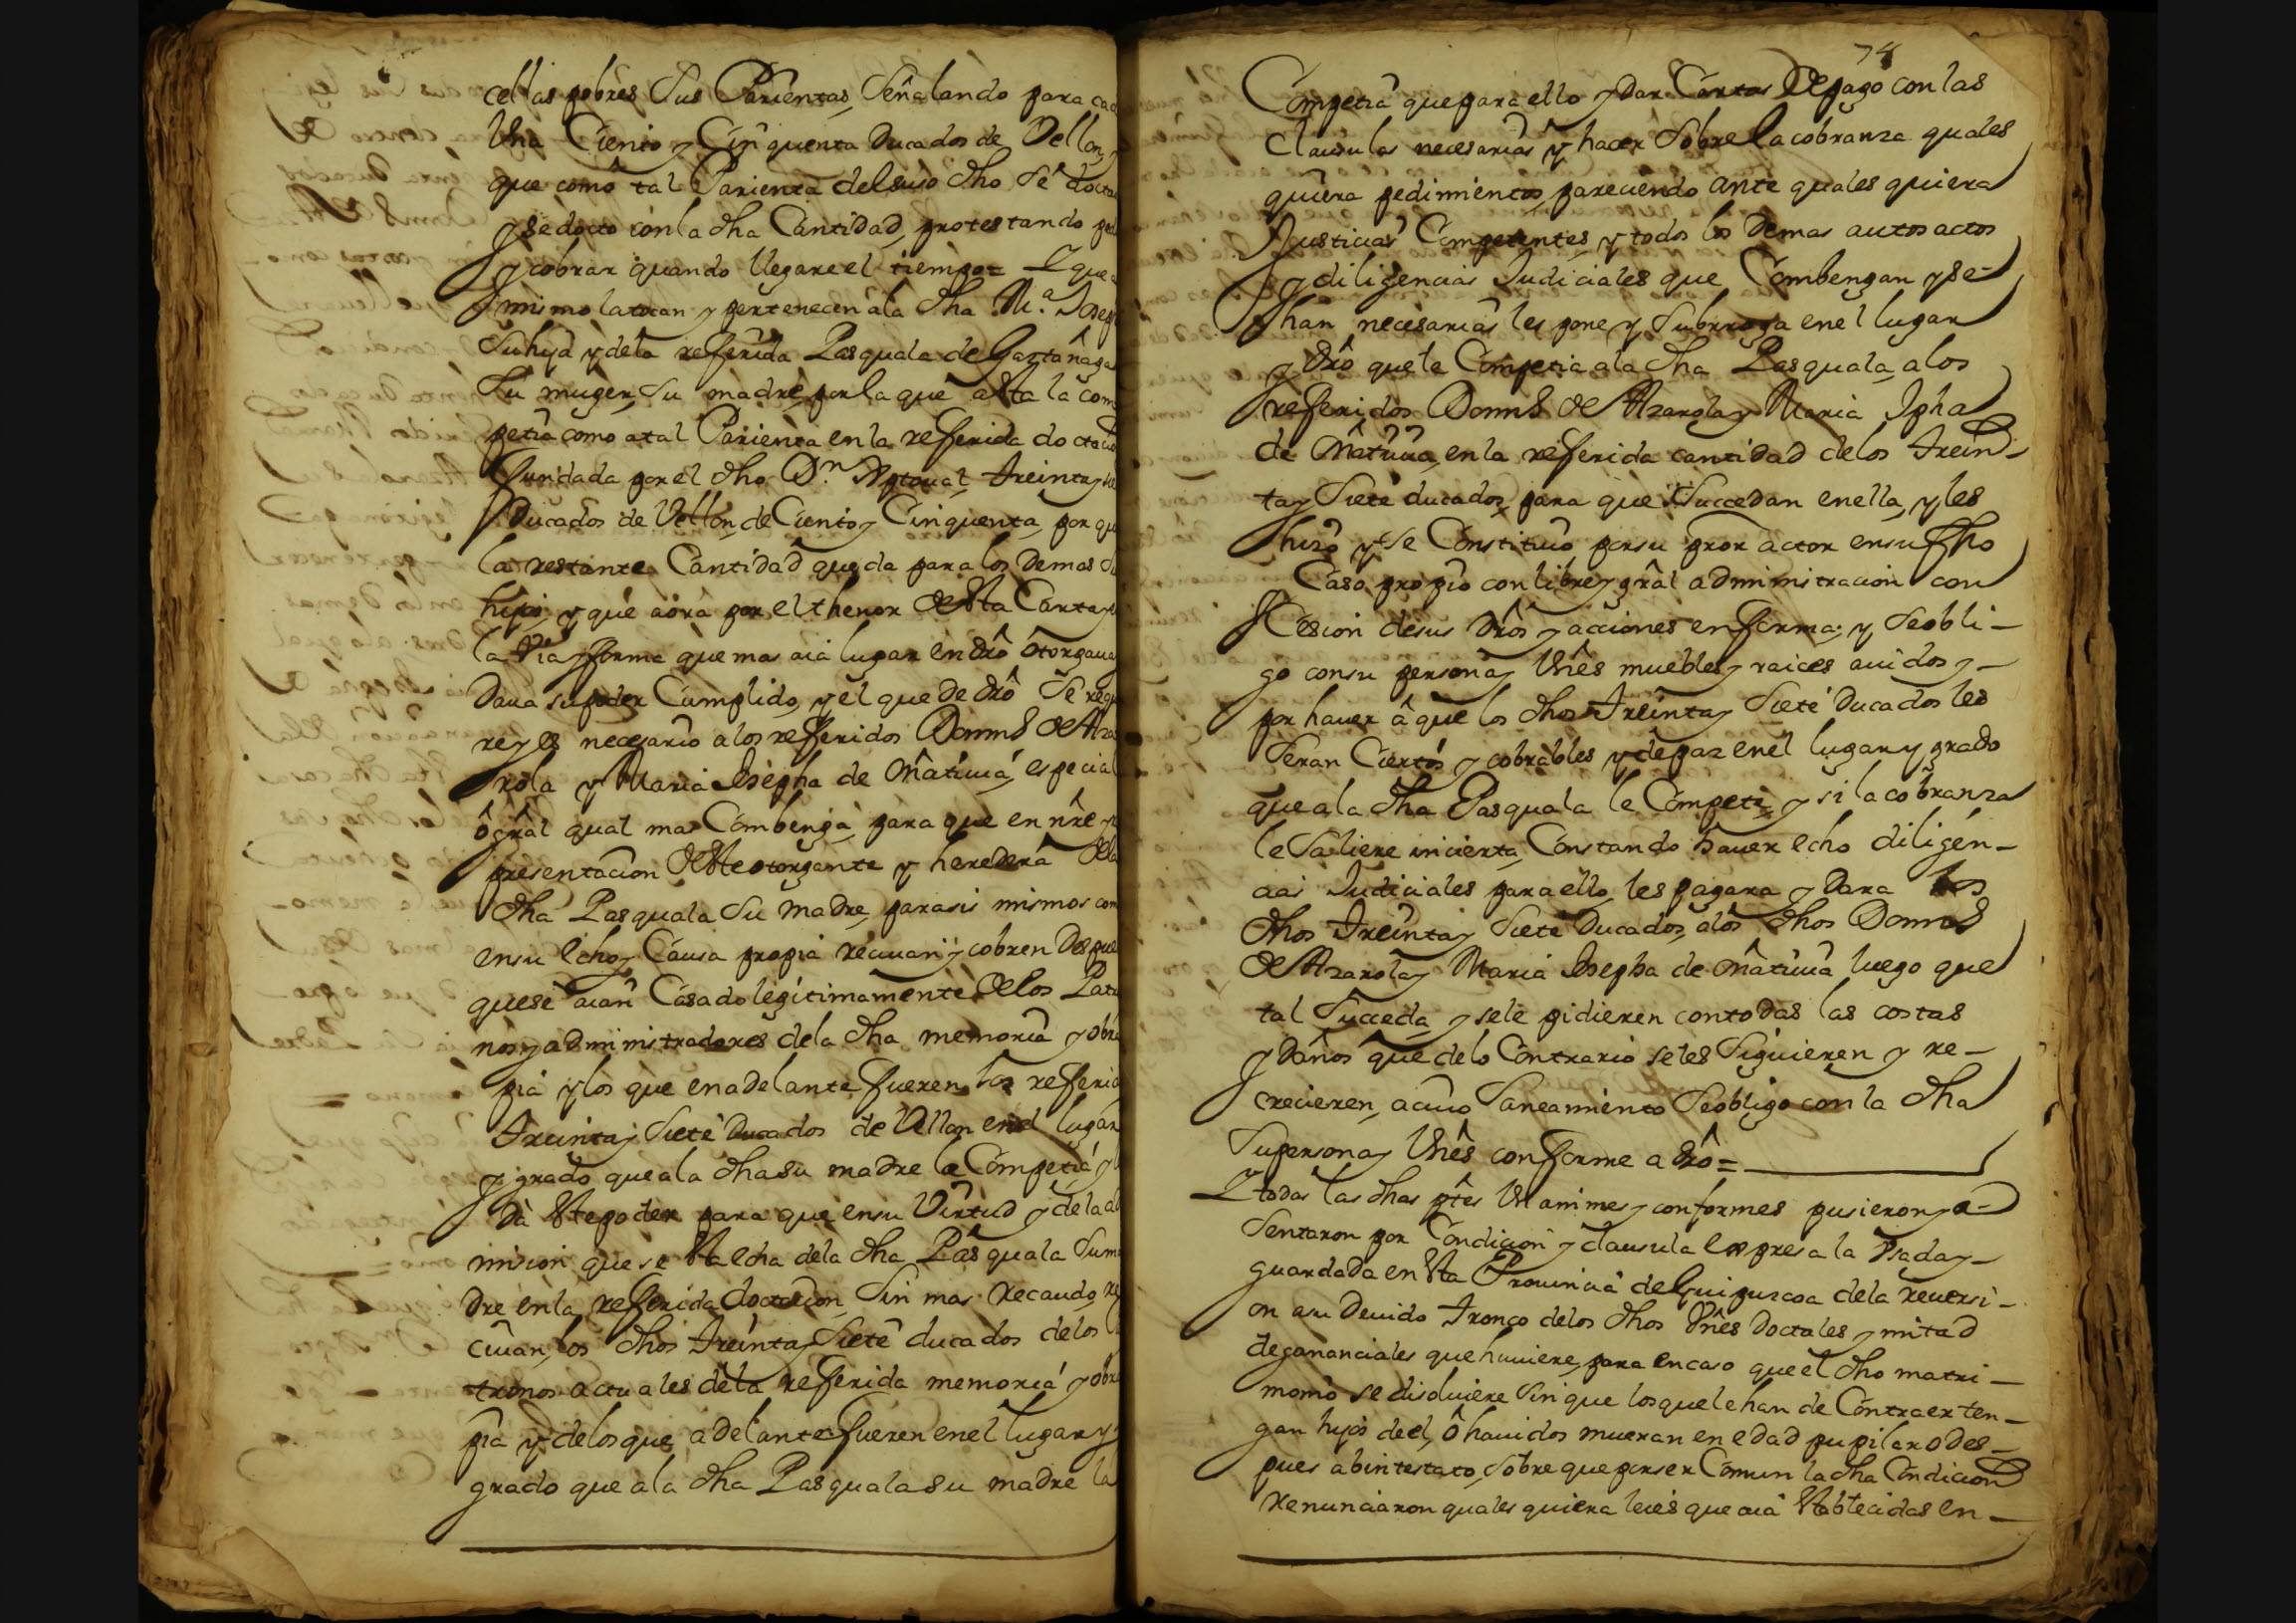 cellas pobres Sus Parientas, Señalando para cad
Vna Ciento y Cinquenta Ducados de Vellon, y
que como tal Parienta del suso dho Se docta
y se docto con la dha Cantidad, protestando ped
y cobrar quando llegare el tiempo = Y que a
mismo la tocan y pertenecen a la dha M.ª Joseph
Su hija y dela referida Pasquala de Gaztañaga
Su muger, Su madre, por la que a esta la com
petia como a tal Parienta en la referida doctacio
fundada por el dho D.n Xptoual, treinta y sie
Ducados de Vellon, de Ciento y Cinquenta, por que
la restante Cantidad queda para los Demas Su
hijos, y que aora por el thenor de esta Carta y
la Via y forma que mas aia lugar en dro otorgaua
Daua su poder Cumplido, y el que de dro Se requ
re y es necesario a los referidos Domns de Aza
rola y Maria Josepha de Matuua, especial
o gral qual mas Combenga para que en nre y re
presentacion deste otorgante y heredera dela
dha Pasquala Su madre, para sis mismos com
en su echo y Causa propia reciuan y cobren Despue
que se aian Casado legitimamente de los Patr
nos y administradores dela dha memoria y obra
pia y los que en adelante fueren, los referid
treinta y Siete Ducados de Vellon en el lugar
y grado que a la dha su madre la Competia, y l
da este poder para que en su Virtud y de la ad
mision que se esta echa dela dha Pasquala Su ma
dre en la referida doctacion, Sin mas Recaudo, re
ciuan, los dhos treinta y Siete ducados de los
tronos actuales dela referida memoria y obra
pia y de los que adelante fueren en el lugar y
grado que a la dha Pasquala su madre la
74
Competia que para ello y Dar Cartas de pago con las
Clausulas necesarias y hacer Sobre la cobranza quales
quiera pedimientos, pareciendo ante quales quiera
Justicias Competentes, y todos los Demas autos actos
y diligencias Judiciales que Combengan y se
han necesarias les pone y Subrroga en el lugar
y dro que le Competia a la dha Pasquala, a los
referidos Domns de Azarola y Maria Jpha
de Matuua, en la referida cantidad de los trein
ta y Siete ducados, para que Succedan en ella, y les
hizo y se Constituio por su pror actor en su fho
y Caso propio con libre y gral adminitracion con
Cesion de sus dros y acciones en forma; y Se obli-
go con su persona y Vnes muebles y raices auidos y
por hauer a que los dhos treinta y Siete Ducados les
Seran Ciertos y cobrables y de paz en el lugar y grado
que a la dha Pasquala le Competi, y si la cobranza
le Saliere incierta, Constando hauer echo diligen-
cias Judiciales para ello, les pagara y Dara los
dhos treinta y Siete Ducados, a los dhos Domns
de Azarola y Maria Josepha de Matuua luego que
tal Succeda, y se le pidieren con todas las costas
y Daños que delo Contrario se les Siguieren y re-
crecieren, a cuio Saneamiento Se obligo con la dha
Su persona y Vnes conforme a dro =
Y todas las dhas ptes Vnanimes y conformes pusieron y a-
Sentaron por Condicion y clausula expresa la Vsada y
guardada en esta Prouincia de Guipuzcoa dela reuersi-
on a su Deuido tronco de los dhos Vnes Doctales y mitad
de gananciales que huuiere, para en caso que el dho matri-
monio se disoluiere Sin que los que le han de Contraer ten-
gan hijos de el, o hauidos mueran en edad pupilar o des-
pues abintestato, Sobre que por ser Comun la dha Condicion
Renunciaron quales quiera leies que aia establecidas en